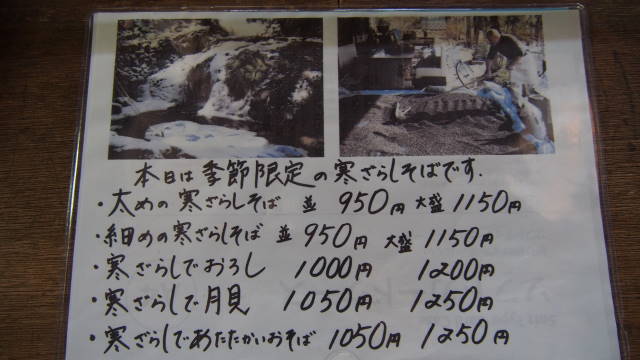 本日は季節限定の寒ざらしそばです.
・太めの寒ざらしそば 並 950円 大盛 1150円
・細めの寒ざらしそば 並 950円 大盛 1150円
・寒ざらしでおろし 1000円 1200円
・寒ざらしで月見 1050円 1250円
・寒ざらしであたたかいおそば 1050円 1250円